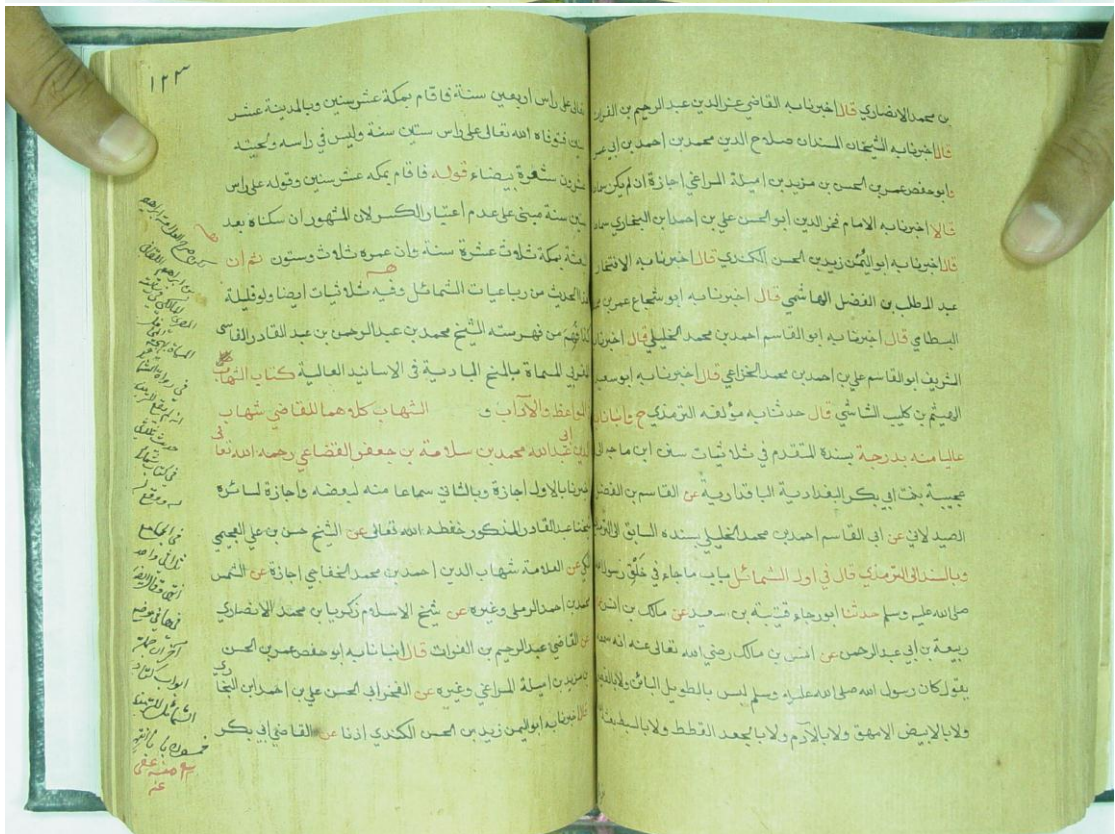 بن محمد الانصاري قال اخبرنا به القاضي عز الدين عبد الرحيم بن الفرات
قالا اخبرنا به الشيخان المسندان صلاح الدين محمد بن احمد بن ابي عمر
وابو حفص عمر بن الحسن بن مزيد بن اميلة المراغي اجازة ان لم يكن سماعا
قالا اخبرنا به الامام فخر الدين ابو الحسن علي بن احمد ابن البخاري سماعا
قال اخبرنا به ابو اليُمن زيد بن الحسن الكندي قال اخبرنا به الافتخار
عبد المطلب بن الفضل الهاشمي قال اخبرنا به ابو شجاع عمر بن محمد
البسطامي قال اخبرنا به ابو القاسم احمد بن محمد الخليلي قال اخبرنا به
الشريف ابو القاسم علي بن احمد بن محمد الخزاعي قال اخبرنا به ابو سعيد
الهيثم بن كليب الشاشي قال حدثنا به مؤلفه الترمذي ح وانبانا
عاليا منه بدرجة بسنده المتقدم في ثلاثيات سنن ابن ماجه الى
عجيبة بنت ابي بكر البغدادية الباقدارية عن القاسم بن الفضل
الصيدلاني عن ابي القاسم احمد بن محمد الخليلي بسنده السابق الى الترمذي
وبالسند الى الترمذي قال في اول الشمائل باب ماجاء في خَلْق رسول الله
صلى الله عليه وسلم حدثنا ابو رجاء قتيبة بن سعيد عن مالك بن انس عن
ربيعة بن ابي عبد الرحمن عن انس بن مالك رضي الله تعالى عنه انه سمعه
يقول كان رسول الله صلى الله عليه وسلم ليس بالطويل البائن ولا بالقصير
ولا بالابيض الامهق ولا بالآدم ولا بالجعد القطط ولا بالسبط بعثه
١٢٣
تعالى على راس اربعين سنة فاقام بمكة عشر سنين وبالمدينة عشر
سنين فتوفاه الله تعالى على راس ستين سنة وليس في راسه ولحيته
عشرون شعرة بيضاء قوله فاقام بمكه عشر سنين وقوله على راس
ستين سنة مبني على عدم اعتبار الكسر لان المشهور ان سكناه بعد
البعثة بمكة ثلاث عشرة سنة وان عمره ثلاث وستون ثم ان
هذا الحديث من رباعيات الشمائل وفيه ثلاثيات ايضا ولو قليلة
كذا فُهم من فهرسته الشيخ محمد بن عبد الرحمن بن عبد القادر الفاسي
المغربي المسماة بالمنح البادية في الاسانيد العالية كتاب الشهاب
المواعظ والاداب و الشهاب كلاهما للقاضي شهاب
الدين ابي عبد الله محمد بن سلامة بن جعفر القضاعي رحمه الله تعالى
اخبرنا بالاول اجازة وبالثاني سماعا منه لبعضه واجازة لسائره
شيخنا عبد القادر المذكور حفظه الله تعالى عن الشيخ حسن بن علي العجيمي
المكي عن العلامة شهاب الدين احمد بن محمد الخفاجي اجازة عن الشمس
محمد بن احمد الرملي وغيره عن شيخ الاسلام زكريا بن محمد الانصاري
عن القاضي عبد الرحيم بن الفرات قال انبانا به ابو حفص عمر بن الحسن
بن مزيد بن اميلة المراغي وغيره عن الفخر ابي الحسن علي بن احمد ابن البخاري
قال اخبرنا به ابو اليمن زيد بن الحسن الكندي اذنا عن القاضي ابي بكر
لكن صرح العلامة ابراهيم
بن ابراهيم اللقاني
في الجامع
ثلاثي واحد